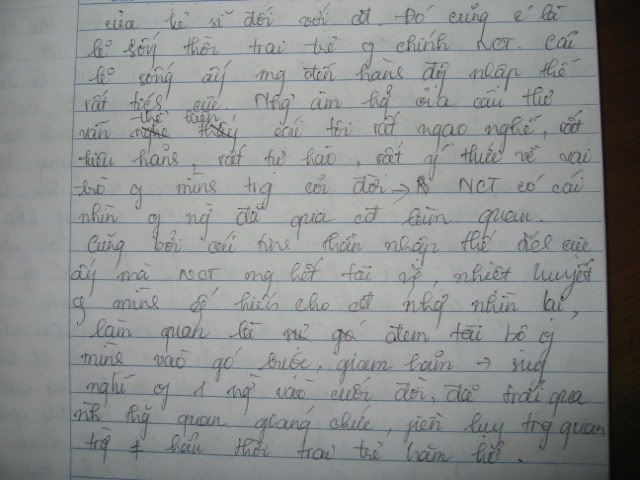 của kẻ sĩ đối với cđ. Đó cũng é là
lẽ sống thời trai trẻ g chính NCT. Cái
lẽ sống ấy mg đến hành độ nhập thế
rất tiếc cực. Nhg âm hg của câu thơ
vẫn thể hiện cái tôi rất ngạo nghễ, rất
kiêu hãnh, rất tự hào, rất ý thức về vai
trò g mình trg cõi đời → NCT có cái
nhìn g ng đã qua cđ làm quan.
Cũng bởi cái tinh thần nhập thế tiếc cực
ấy mà NCT mg hết tài , nhiệt huyết
g mình để hiến cho cđ nhg nhìn lại,
làm quan là đem tài bộ g
mình vào gó buộc, giam hãm → suy
nghĩ g 1 ng vào cuối đời, đã trải qua
nh thg quan giáng chức, liên lụy trg quan
trg ≠ hẳn thời trai trẻ hăm hở.